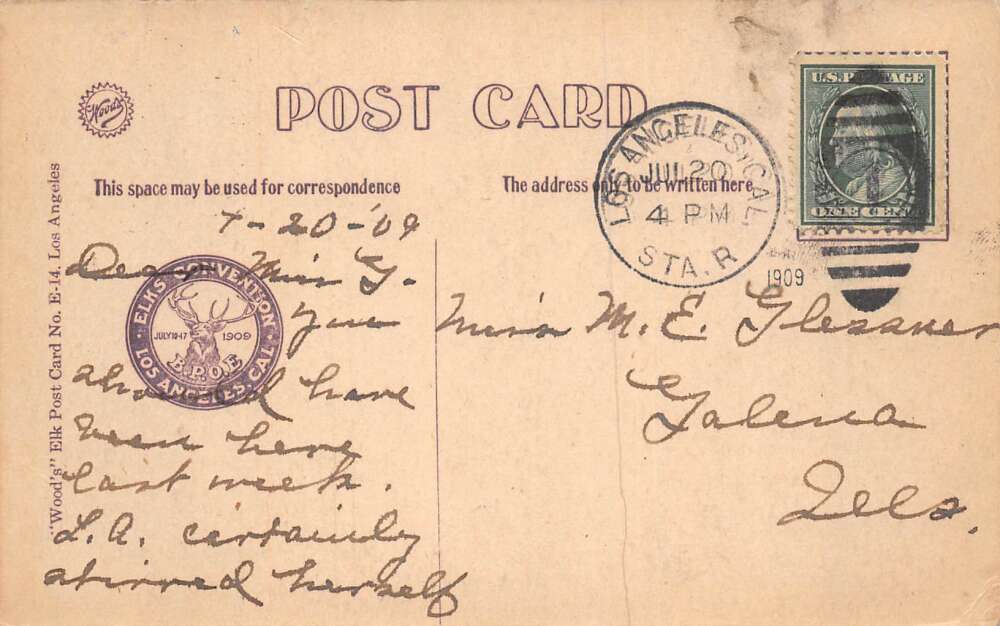 Woods
POST CARD
This space may be used for correspondence
The address only to be written here
"Wood's" Elk Post Card No. E-14. Los Angeles
LOS ANGELES, CAL.
JUL 20
4 PM
STA. R
1909
U.S. POSTAGE
ONE CENT
7-20-'09
Dear Miss G.
You
should have
been here
last week.
L.A. certainly
stirred herself
ELKS CONVENTION
JULY 11-17 1909
B.P.O.E
LOS ANGELES, CAL.
Miss M. E. Glessner
Galena
Ills.